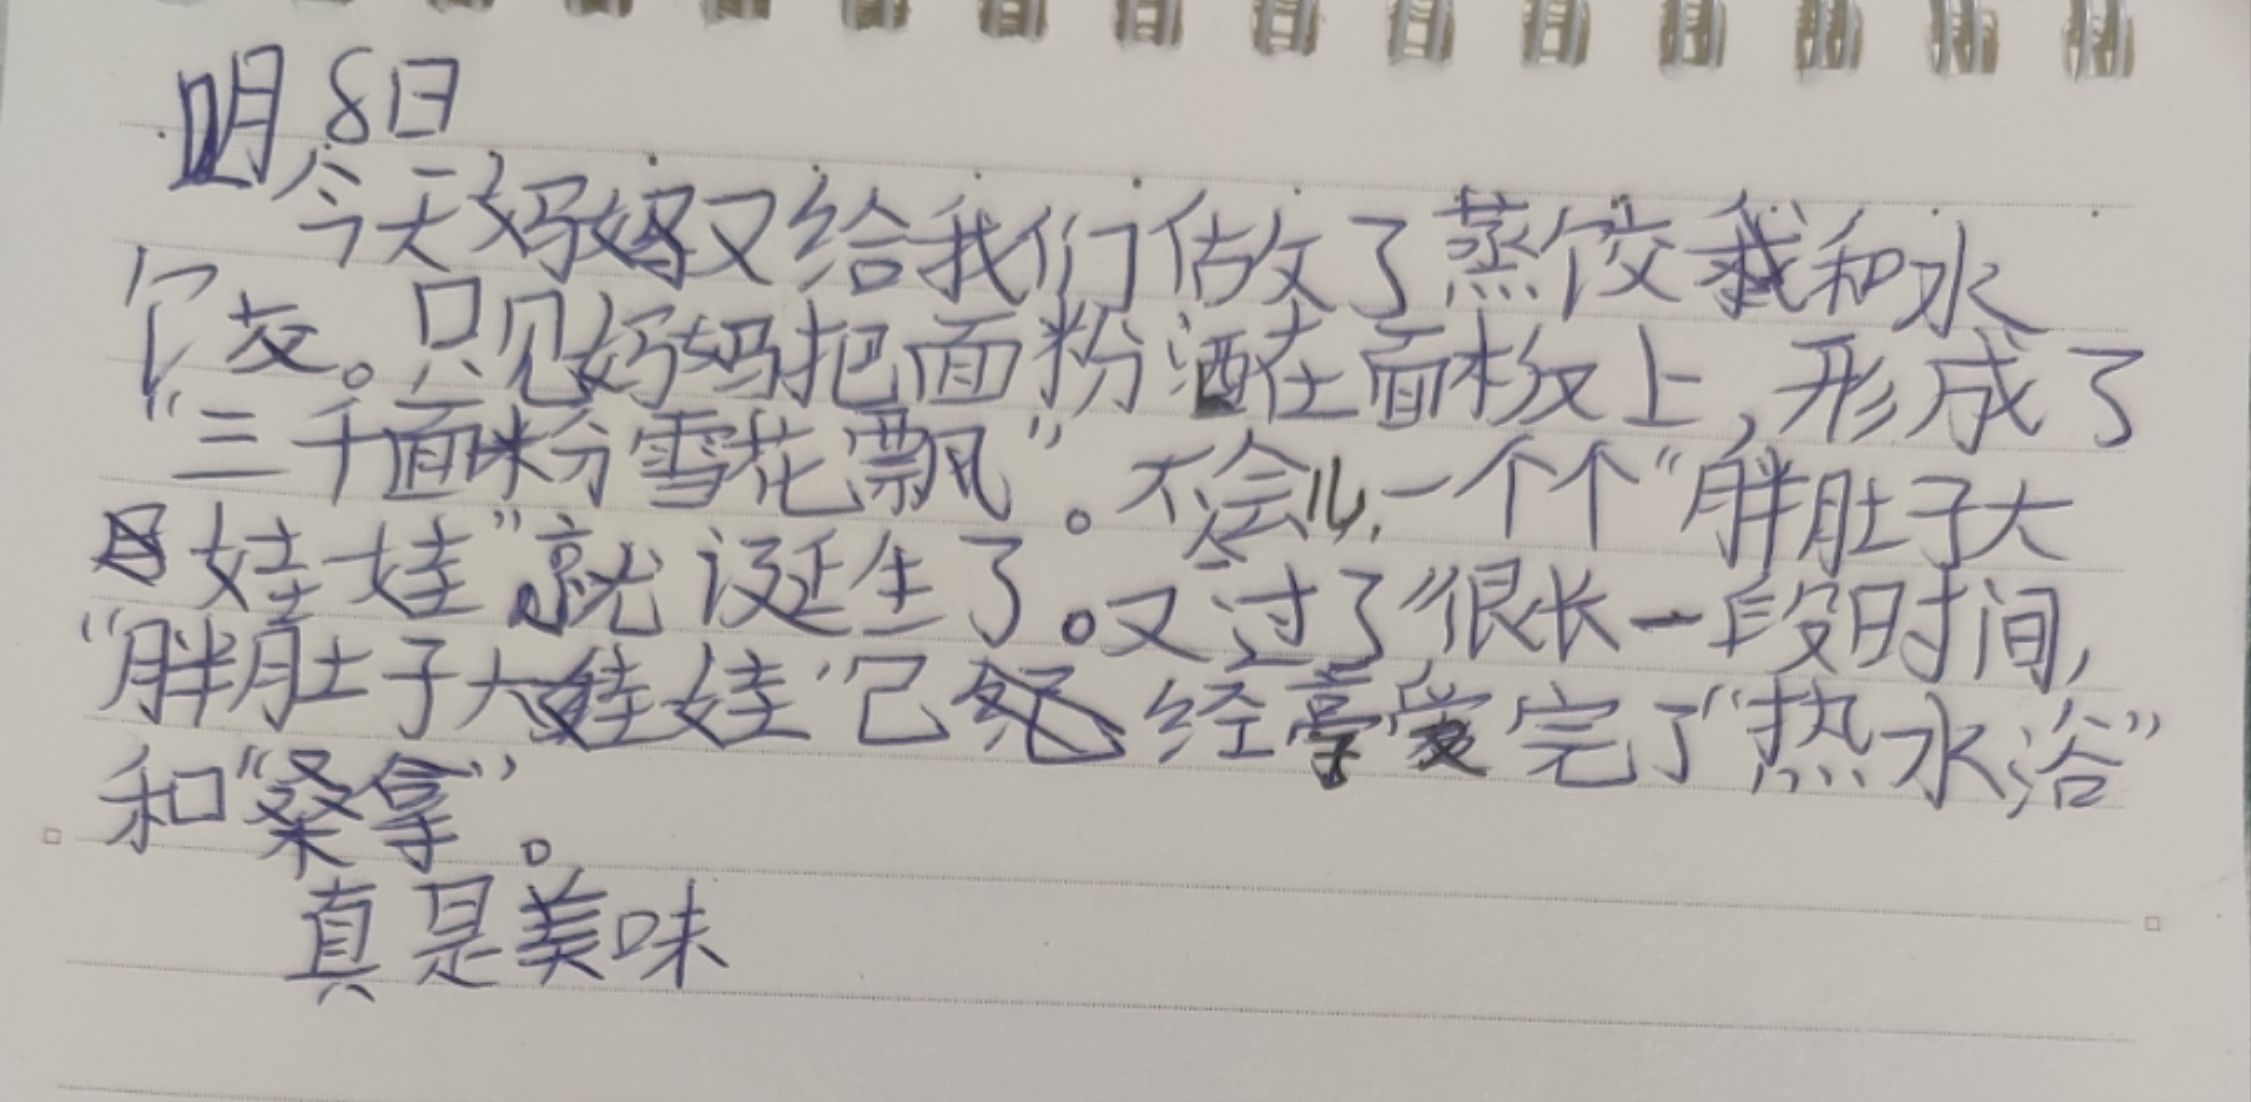 明8日
今天妈妈又给我们做了蒸饺和水
饺。只见妈妈把面粉洒在面板上,形成了
“三千面粉雪花飘”。不会儿,一个个“胖肚子大
娃娃”就诞生了。又过了很长一段时间,
“胖肚子大娃娃”已经享受完了“热水浴”
和“桑拿”。
真是美味